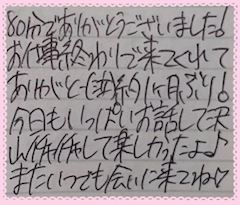 80分でありがとうございました!
お仕事終わりで来てくれて
ありがと〜(泣)約1ヶ月ぶり!
今日もいっぱいお話して沢
山イチャイチャして楽しかったよ♪
またいつでも会いに来てね♡